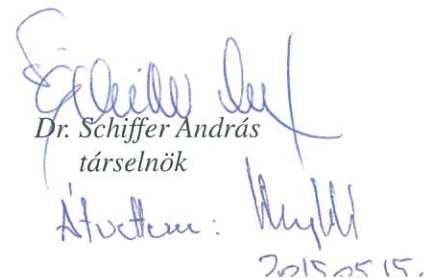 Dr. Schiffer András
társelnök
Átvettem:
2015.05.15.